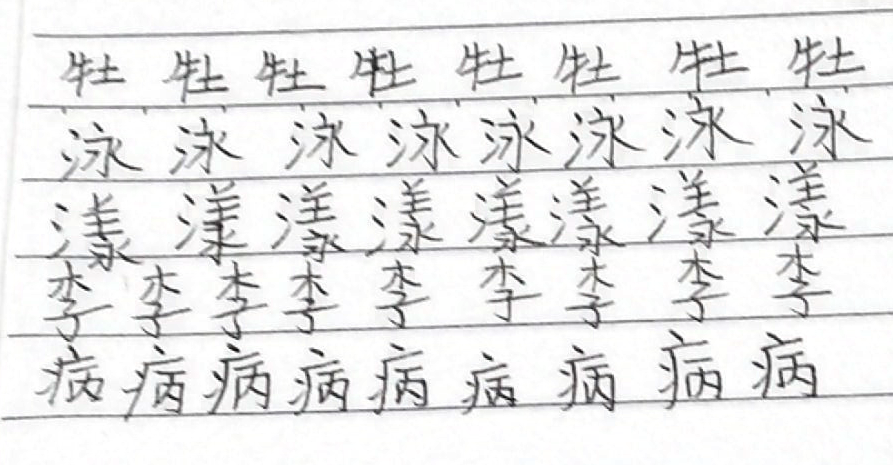 牡 牡 牡 牡 牡 牡 牡 牡
泳 泳 泳 泳 泳 泳 泳 泳
漾 漾 漾 漾 漾 漾 漾 漾
李 李 李 李 李 李 李 李 李
病 病 病 病 病 病 病 病 病